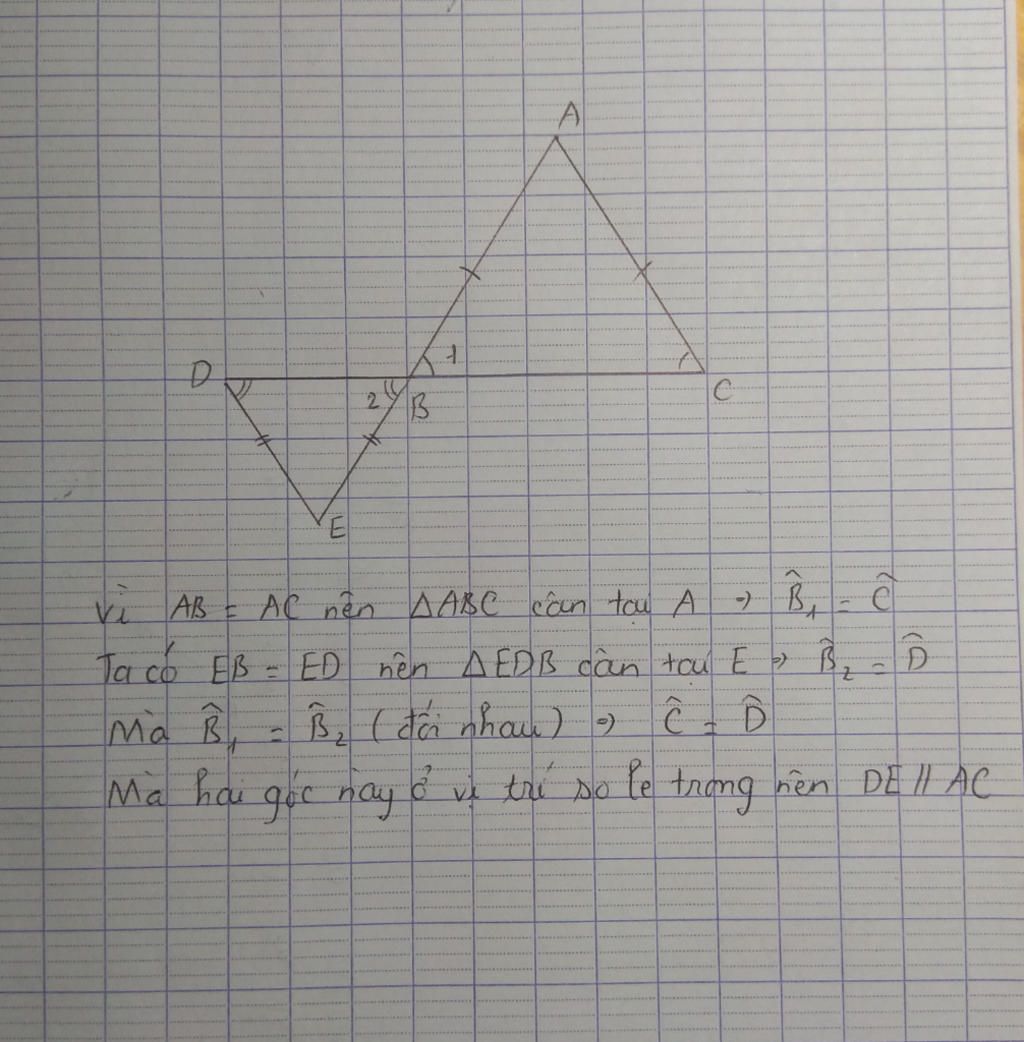 A
1
D
2
B
C
E
Vì AB = AC nên ΔABC cân tại A ⇒ B̂₁ = Ĉ
Ta có EB = ED nên ΔEDB cân tại E ⇒ B̂₂ = D̂
Mà B̂₁ = B̂₂ (đối nhau) ⇒ Ĉ = D̂
Mà hai góc này ở vị trí so le trong nên DE // AC